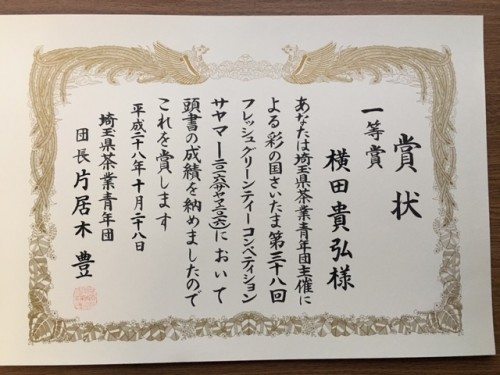 賞状
一等賞
横田貴弘様
あなたは埼玉県茶業青年団主催に
よる彩の国さいたま第三十八回
フレッシュグリーンティーコンペティション
サヤマー二二において
頭書の成績を納めましたので
これを賞します
平成二十八年十月二十八日
埼玉県茶業青年団
団長片居木豊